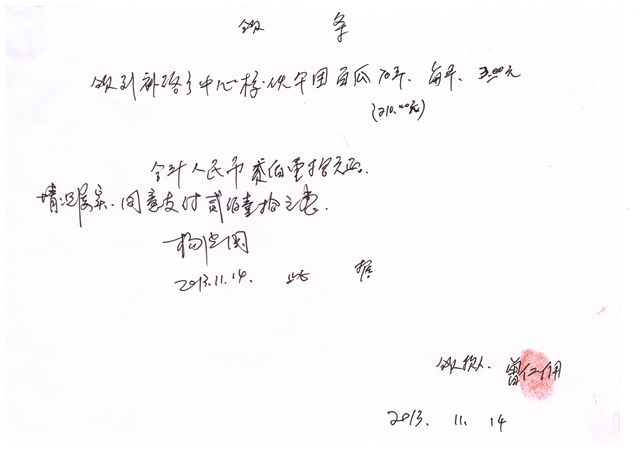 收 条
收到补路乡中心校伙食团西瓜70斤,每斤3.00元
(210.00元)
合计人民币贰佰壹拾元正.
情况属实,同意支付贰佰壹拾元整.
2013.11.14. 此 据
收款人.曾仁
2013. 11. 14